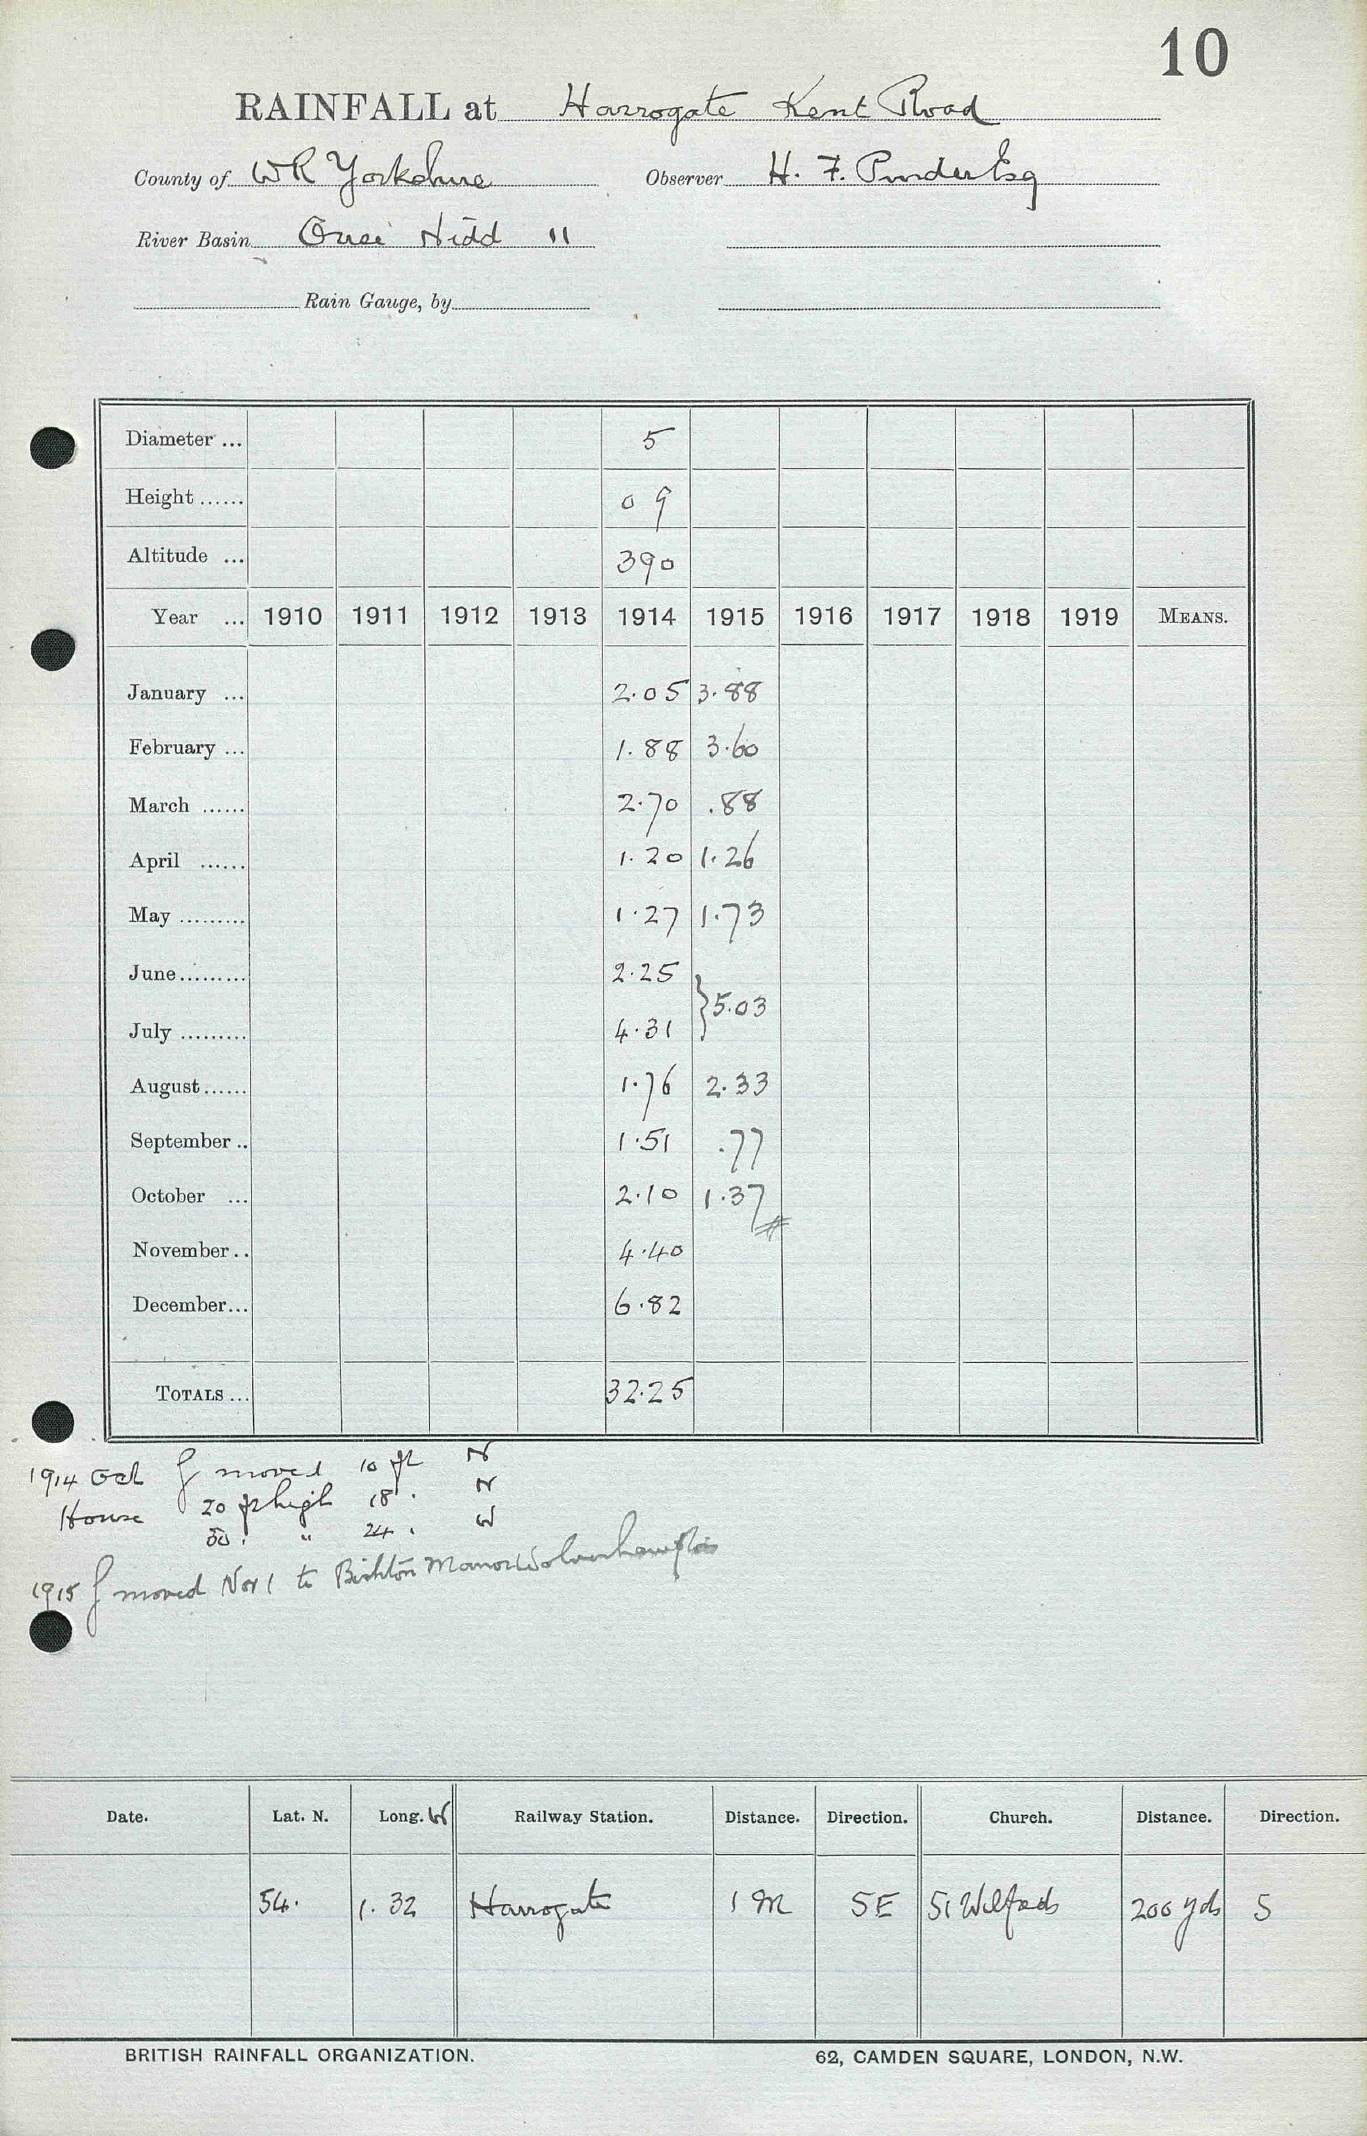 10
RAINFALL at Harrogate Kent Road
County of WR Yorkshire Observer H. F. Pinder Esq
River Basin Ouse Nidd 11
Rain Gauge, by
Diameter ... 5
Height ...... 0 9
Altitude ... 390
Year ... 1910 1911 1912 1913 1914 1915 1916 1917 1918 1919 MEANS.
January ... 2.05 3.88
February ... 1.88 3.60
March ...... 2.70 .88
April ...... 1.20 1.26
May ......... 1.27 1.73
June ......... 2.25
} 5.03
July ......... 4.31
August ...... 1.76 2.33
September .. 1.51 .77
October ... 2.10 1.37
November .. 4.40
December ... 6.82
TOTALS ... 32.25
1914 Oct G moved 10 ft N
House 20 ft high 18 . N
" 24 . W
1915 G moved Nov 1 to Bishton Manor Wolverhampton
Date. Lat. N. Long. W Railway Station. Distance. Direction. Church. Distance. Direction.
54. 1. 32 Harrogate 1 M SE St Wilfrids 200 yds S
BRITISH RAINFALL ORGANIZATION. 62, CAMDEN SQUARE, LONDON, N.W.